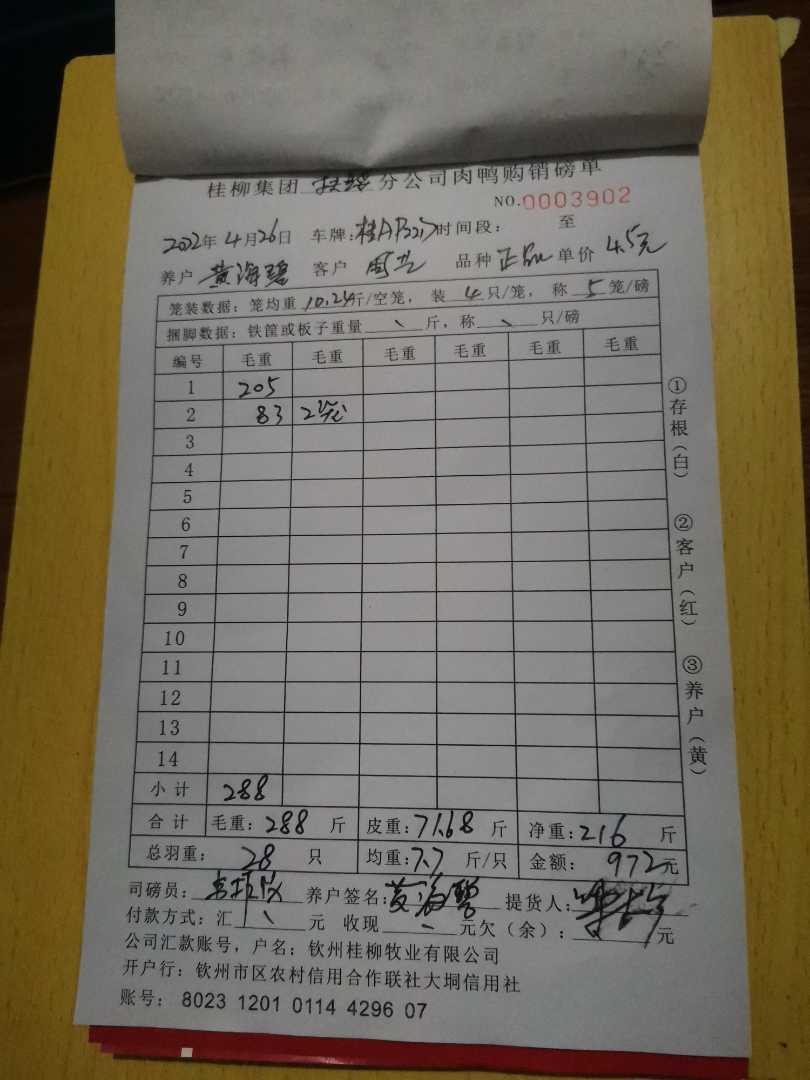 桂柳集团 扶绥 分公司肉鸭购销磅单
NO.0003902
2022年 4月26日 车牌: 桂A 时间段: 至
养户 黄海碧 客户 周兰 品种 正品 单价 4.5元
笼装数据: 笼均重 10.24斤/空笼, 装 4 只/笼, 称 5 笼/磅
捆脚数据: 铁筐或板子重量 、 斤, 称 、 只/磅
编号 毛重 毛重 毛重 毛重 毛重 毛重
1 205
2 83 2笼
3
4
5
6
7
8
9
10
11
12
13
14
小计 288
合计 毛重: 288 斤 皮重: 71.68 斤 净重: 216 斤
总羽重: 28 只 均重: 7.7 斤/只 金额: 972元
司磅员: 养户签名: 黄海碧 提货人:
付款方式: 汇 、 元 收现 、 元 欠(余): 元
公司汇款账号, 户名: 钦州桂柳牧业有限公司
开户行: 钦州市区农村信用合作联社大垌信用社
账号: 8023 1201 0114 4296 07
①存根(白)
②客户(红)
③养户(黄)